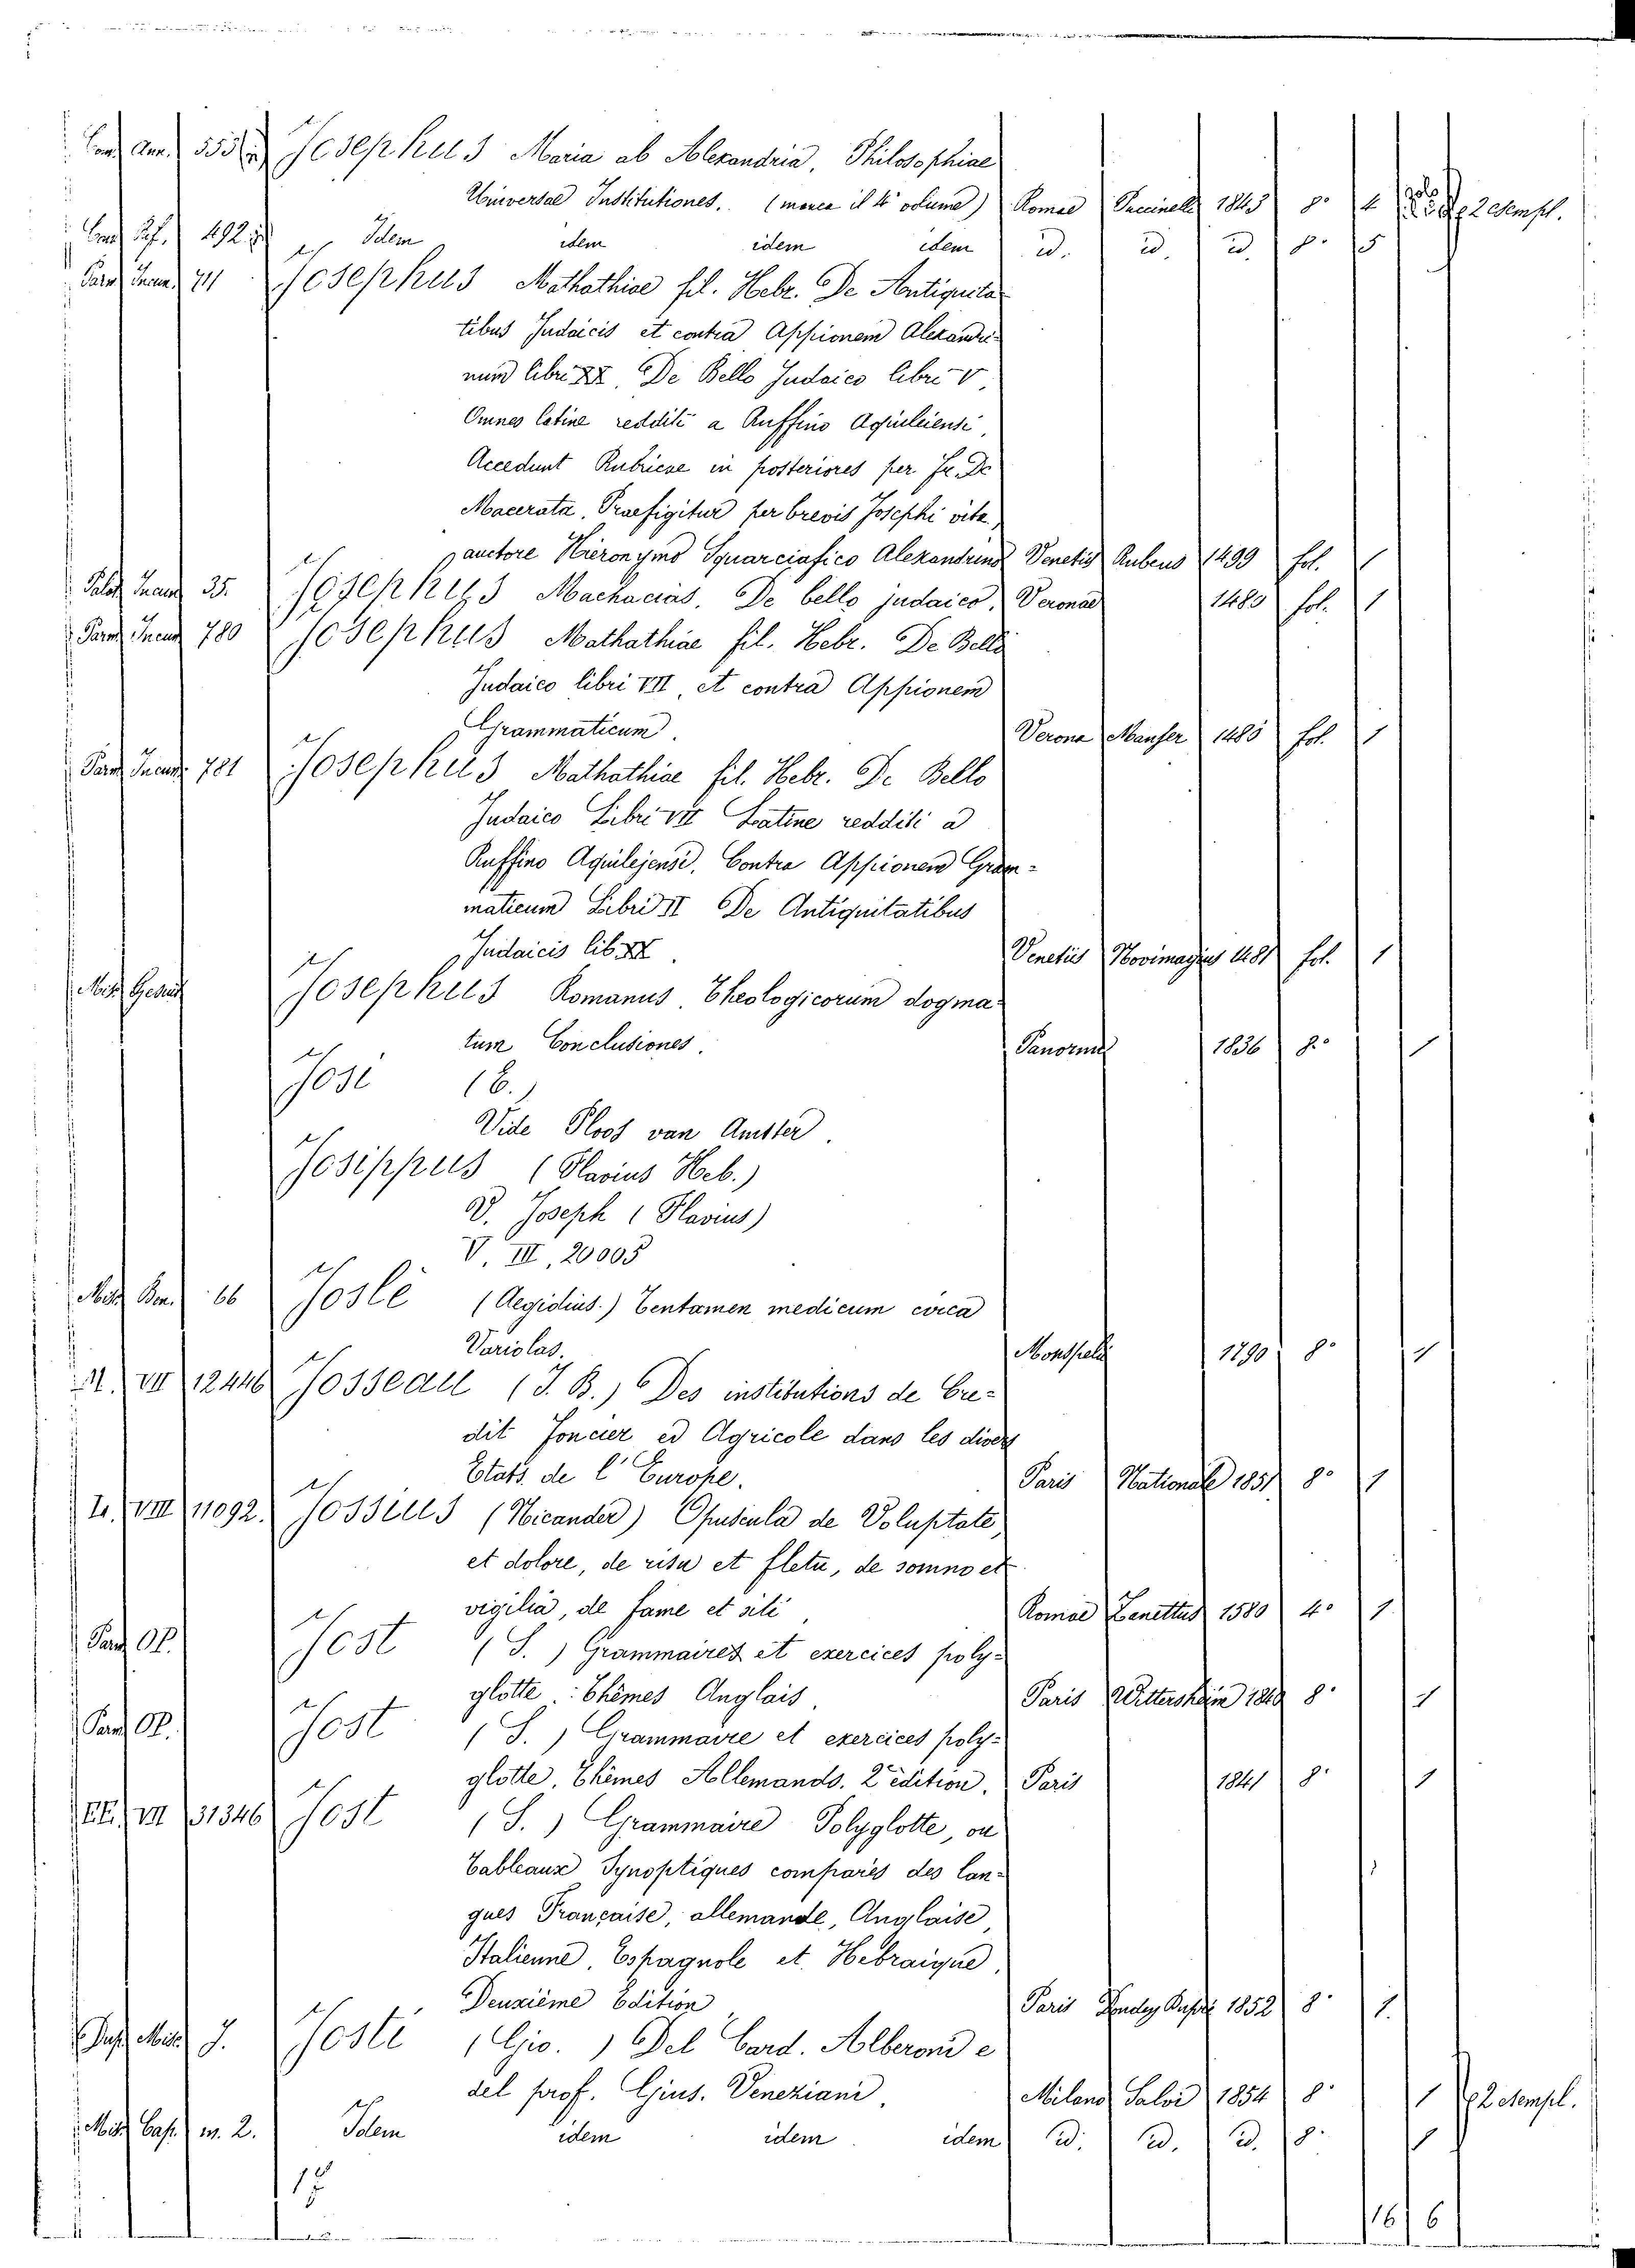 Josephus Maria ab Alexandria, Philosophiae
Universae Institutiones, (manca il 4° volume) Romae Puccinelli 1843 8° 4 2 esempl.
492 Idem idem idem idem id. id. id. 8° 5
Parm Incun. 711 Josephus Mathathiae fil. Hebr. De Antiquita
tibus Judaicis et contra Appionem Alexandri-
num libri XX, De Bello Judaico libri V,
Omnes latine redditi a Ruffino Aquileiensi,
Accedunt Rubricae in posteriores per Fr. De
Macerata, Praefigitur per brevis Josephi vita,
auctore Hieronymo Squarciafico Alexandrino Venetiis Rubeus 1499 fol. 1
35. Josephus Machacias. De bello judaico, Veronae 1480 fol. 1
Parm Incun 780 Josephus Mathathiae fil. Hebr. De Belli
Judaico libri VII, et contra Appionem
Grammaticum. Verona Manfer 1480 fol. 1
Parm Incun 781 Josephus Mathathiae fil. Hebr. De Bello
Judaico Libri VII Latine redditi a
Ruffino Aquilejensi, Contra Appionem Gram-
maticum Libri II De Antiquitatibus
Judaicis lib XX. Venetiis Novimagius 1481 fol. 1
Josephus Romanus, Theologicorum dogma-
tum Conclusiones. Panormi 1836 8° 1
Josi (C.)
Vide Ploos van Amster.
Josippus (Flavius Heb.)
V. Joseph (Flavius)
V. III, 20005
66 Joslé (Aegidius.) Tentamen medicum circa
Variolas. Monspeli 1790 8° 1
VII 12446 Josseau (J. B.) Des institutions de Cre-
dit Foncier ed Agricole dans les divers
Etats de l'Europe. Paris Nationale 1851 8° 1
VIII 11092. Jossius (Nicander) Opuscula de Voluptate,
et dolore, de risu et fletu, de somno et
vigilia, de fame et siti, Romae Zanettus 1580 4° 1
Jost (S.) Grammaires et exercices poly-
glotte: Thèmes Anglais, Paris Wittersheim 8° 1
Jost (S.) Grammaire et exercices poly-
glotte, Thèmes Allemands. 2e édition. Paris 1841 8° 1
VII 31346 Jost (S.) Grammaire Polyglotte, ou
Tableaux Synoptiques comparés des lan-
gues Française, allemande, Anglaise,
Italienne, Espagnole et Hebraique,
Deuxième Edition Paris 1852 8° 1.
J. Josti (Gio.) Del Card. Alberoni e
del prof. Gius. Veneziani, Milano Salvi 1854 8° 1 2 esempl.
m. 2. Idem idem idem idem id. id. id. 8° 1
17
16 6